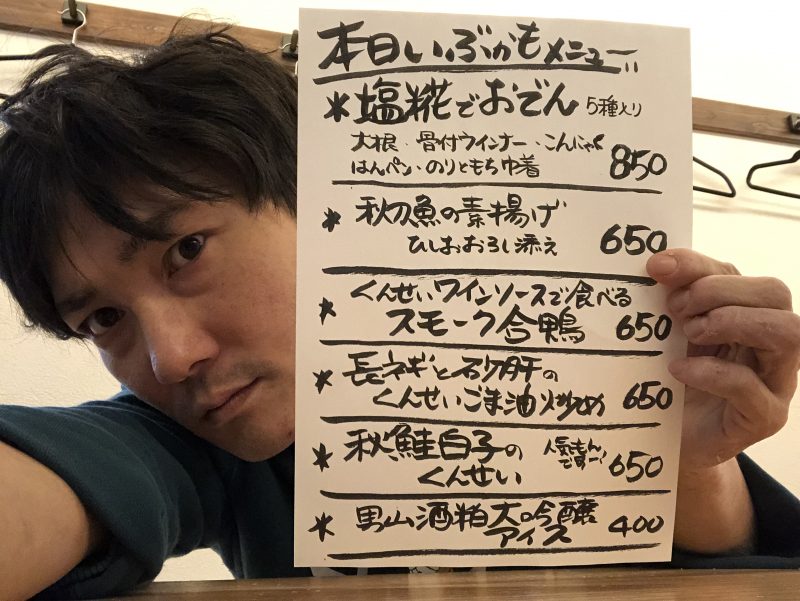 本日いぶかもメニュー
*塩糀でおでん 5種入り
大根・骨付ウインナー・こんにゃく
はんぺん・のりともち巾着 850
*秋刀魚の素揚げ
ひしおおろし添え 650
*くんせいワインソースで食べる
スモーク合鴨 650
*長ネギと砂肝の
くんせいごま油炒め 650
*秋鮭白子の
くんせい 人気もん
ですー! 650
*男山酒粕大吟醸
アイス 400